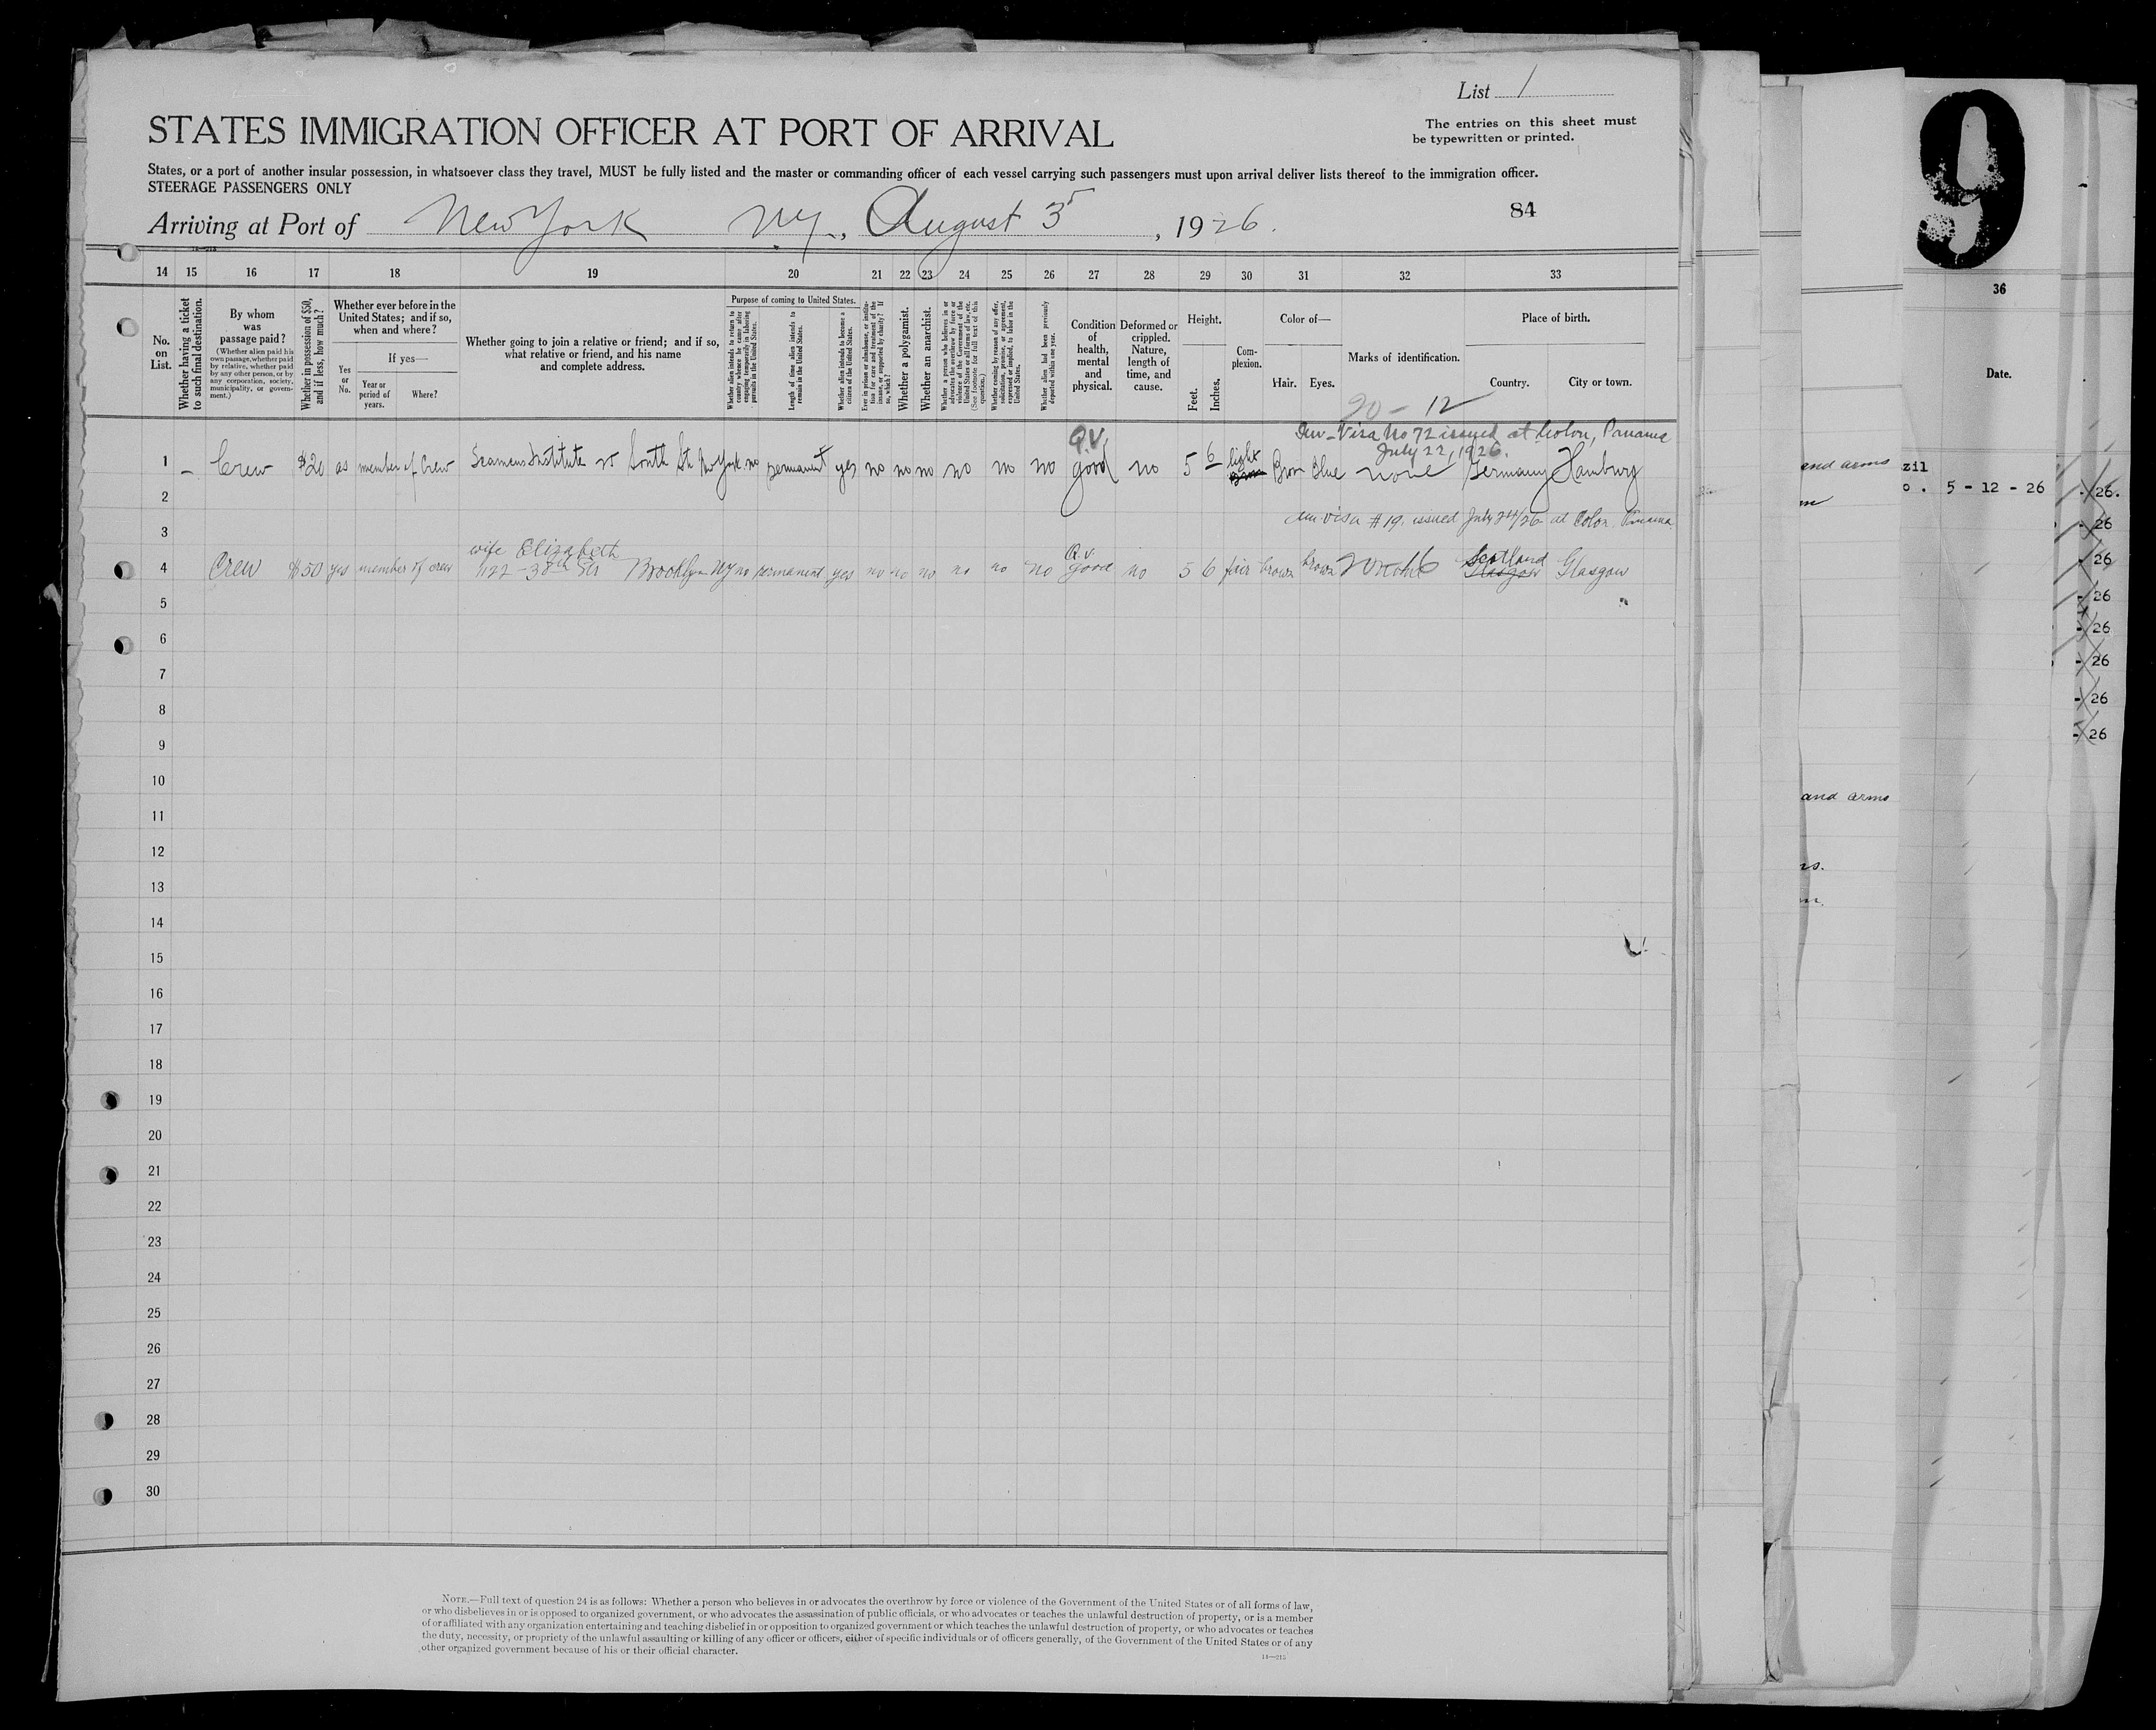 List 1
STATES IMMIGRATION OFFICER AT PORT OF ARRIVAL
The entries on this sheet must
be typewritten or printed.
States, or a port of another insular possession, in whatsoever class they travel, MUST be fully listed and the master or commanding officer of each vessel carrying such passengers must upon arrival deliver lists thereof to the immigration officer.
STEERAGE PASSENGERS ONLY
Arriving at Port of New York NY., August 3, 1926.
84
9
14 15 16 17 18 19 20 21 22 23 24 25 26 27 28 29 30 31 32 33
36
Date.
No. on List.
Whether having a ticket to such final destination.
By whom was passage paid?
(Whether alien paid his own passage, whether paid by relative, whether paid by any other person, or by any corporation, society, municipality, or government.)
Whether in possession of $50, and if less, how much?
Whether ever before in the United States; and if so, when and where?
Yes or No.
If yes—
Year or period of years.
Where?
Whether going to join a relative or friend; and if so, what relative or friend, and his name and complete address.
Purpose of coming to United States.
Whether alien intends to return to country whence he came after engaging temporarily in laboring pursuits in the United States.
Length of time alien intends to remain in the United States.
Whether alien intends to become a citizen of the United States.
Ever in prison or almshouse, or institution for care and treatment of the insane, or supported by charity? If so, which?
Whether a polygamist.
Whether an anarchist.
Whether a person who believes in or advocates the overthrow by force or violence of the Government of the United States or all forms of law, etc. (See footnote for full text of this question.)
Whether coming by reason of any offer, solicitation, promise, or agreement, expressed or implied, to labor in the United States.
Whether alien had been previously deported within one year.
Condition of health, mental and physical.
Deformed or crippled. Nature, length of time, and cause.
Height.
Feet.
Inches.
Complexion.
Color of—
Hair.
Eyes.
Marks of identification.
Place of birth.
Country.
City or town.
20 - 12
Am-Visa No 72 issued at Colon, Panama
July 22, 1926.
Q.V.
1 - Crew $20 as member of Crew Seamens Institute 25 South St New York no permanent yes no no no no no no good no 5 6 light Brn Blue none Germany Hamburg
2
Am visa #19, issued July 24/26 at Colon Panama
3
wife Elizabeth
Q.V.
Scotland
4 Crew $50 yes member of crew 1122 - 38th St Brooklyn NY no permanent yes no no no no no no good no 5 6 fair brown brown Glasgow Glasgow
5
6
7
8
9
10
11
12
13
14
15
16
17
18
19
20
21
22
23
24
25
26
27
28
29
30
and arms
zil
o. 5 - 12 - 26
- 26.
- 26
- 26
- 26
- 26
- 26
- 26
- 26
and arms
NOTE.—Full text of question 24 is as follows: Whether a person who believes in or advocates the overthrow by force or violence of the Government of the United States or of all forms of law,
or who disbelieves in or is opposed to organized government, or who advocates the assassination of public officials, or who advocates or teaches the unlawful destruction of property, or is a member
of or affiliated with any organization entertaining and teaching disbelief in or opposition to organized government or which teaches the unlawful destruction of property, or who advocates or teaches
the duty, necessity, or propriety of the unlawful assaulting or killing of any officer or officers, either of specific individuals or of officers generally, of the Government of the United States or of any
other organized government because of his or their official character.
14—215